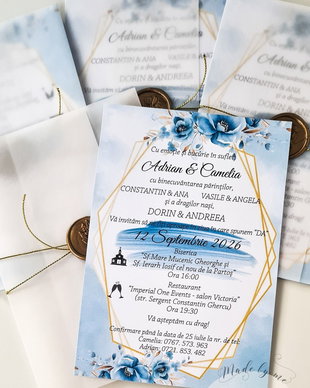 Cu binecuvântarea părinților,
CONSTANTIN & ANA
și a dragilor nași,
DORIN & ANDREEA
Adrian & Camelia
Cu emoție și bucurie în suflet
Adrian & Camelia
cu binecuvântarea părinților,
CONSTANTIN & ANA VASILE & ANGELA
și a dragilor noștri nași,
DORIN & ANDREEA
Vă invităm să fiți alături când spunem "DA"
12 Septembrie 2026
Biserica
"Sf.Mare Mucenic Gheorghe și
Sf. Ierarh Iosif cel nou de la Partoș"
Ora 16:00
Restaurant
"Imperial One Events - salon Victoria"
(str. Sergent Constantin Ghercu)
Ora 19:30
Vă așteptăm cu drag!
Confirmare până la data de 25 iulie la nr. de tel:
Camelia: 0767. 573. 963
Adrian: 0721. 853. 482